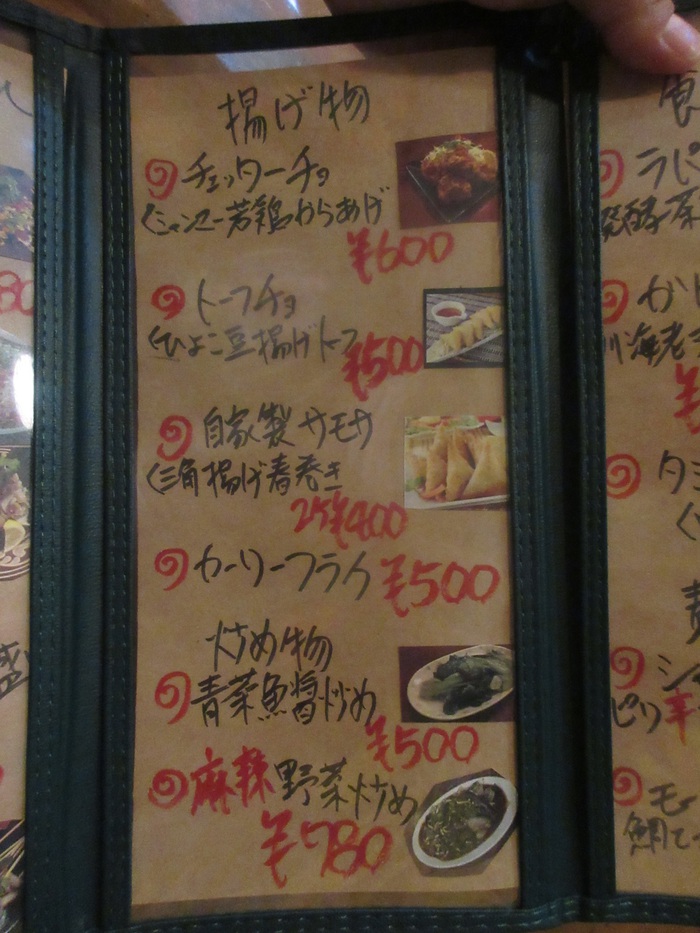 揚げ物
チェッターチョ
くシャンマー若鶏からあげ
¥600
トーフチョ
くひよこ豆揚げトーフ
¥500
自家製サモサ
く三角揚げ春巻き
2ケ¥400
カーリーフライ ¥500
炒め物
青菜魚醤炒め
¥500
麻辣野菜炒め
¥780
食
ラペ
発酵茶
かけ
川海老
タミ
く
シャ
ピリ辛
モー
鯛て
盛